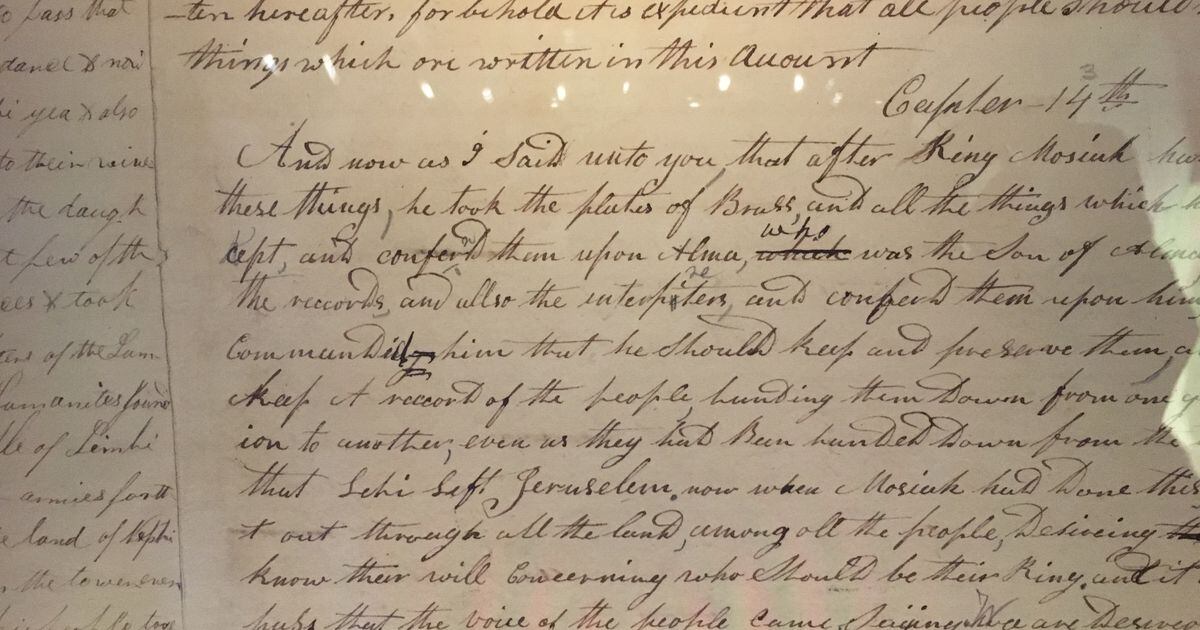 o pass that
danel & now
hi yea & also
to their wives
the daugh
t few of the
ees & took
ters of the Lam
Lamanites found
le of Limhi
armies forth
e land of Nephi
the tower even
-ten hereafter, for behold it is expedient that all people should
things which are written in this Account
Capter - 14th 3
And now as I Said unto you, that after King Mosiah had
these things, he took the plates of Brass, and all the things which h
cept, and conferd them upon Alma, which who was the Son of Alma
the reccords, and allso the interpreters, and conferd them upon him
Commanded him that he Should keep and preserve them, a
keep A reccord of the people, handing them Down from one g
ion to another, even as they had Been handed Down from the
that Lehi Left Jeruselem. now when Mosiah had Done this
t out through all the land, among all the people, Desireing
know their will Concerning who Should be their King. and it
pass that the voice of the people came Saiing we are Desireo